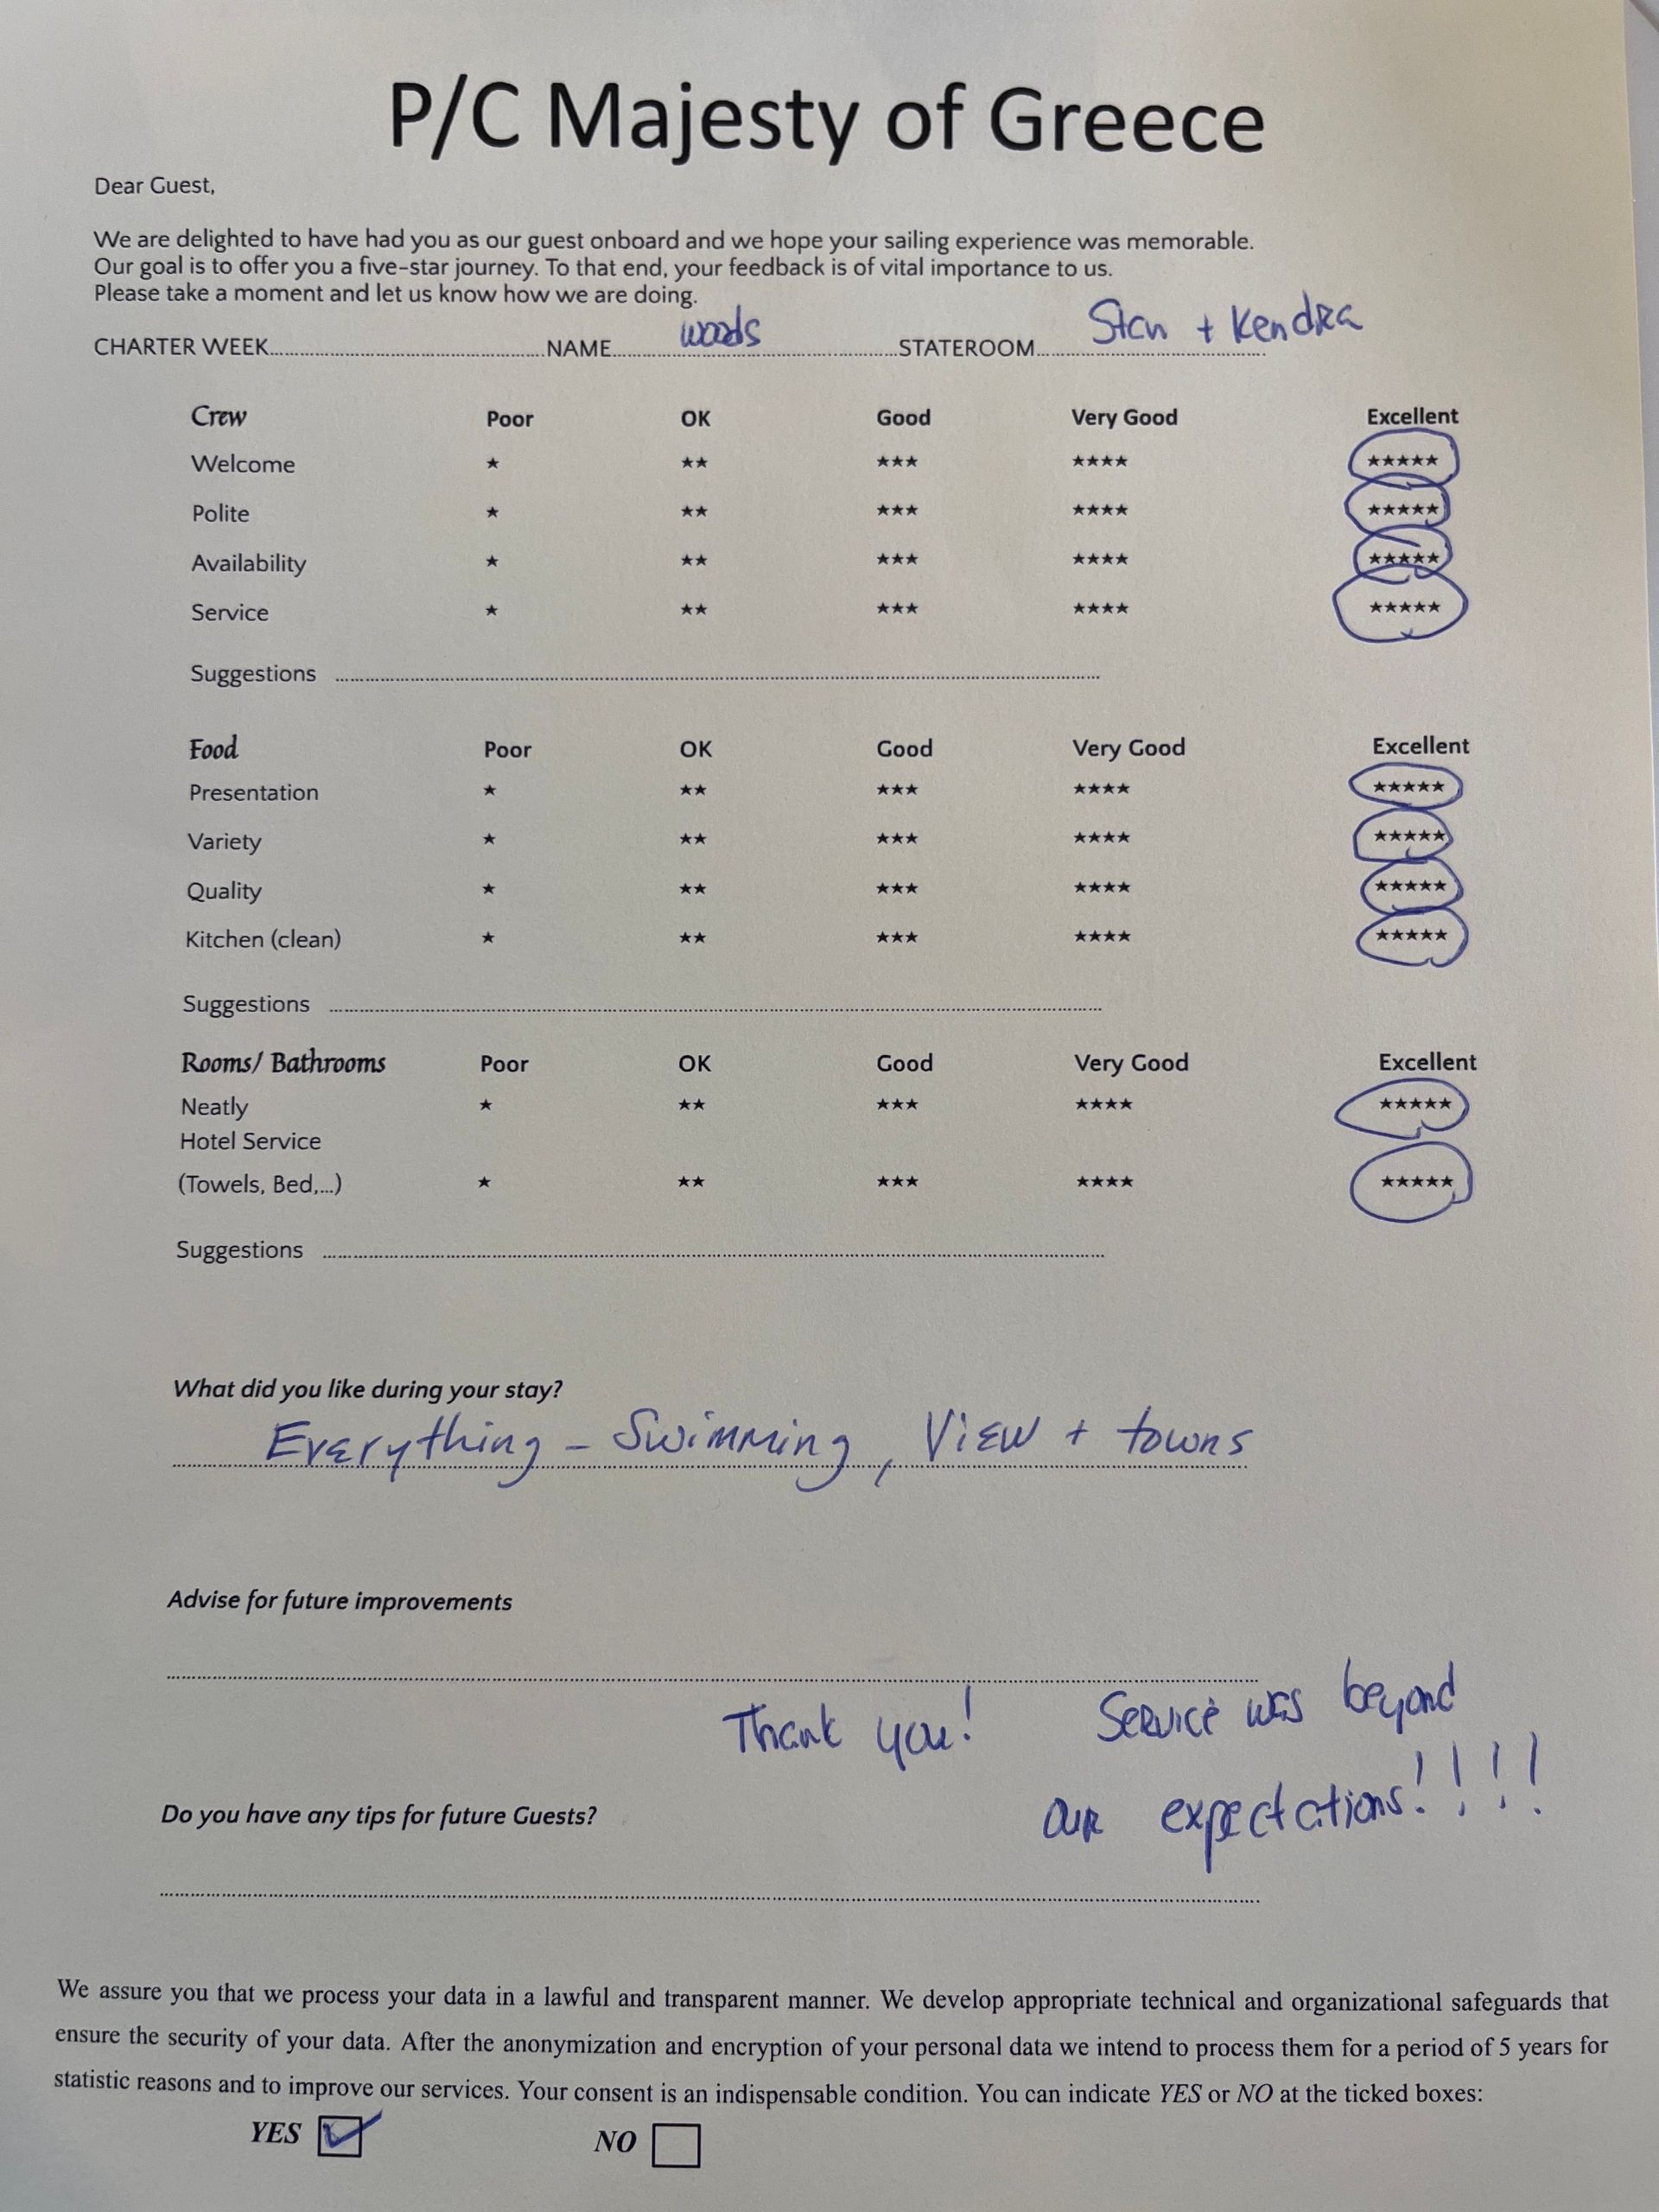 P/C Majesty of Greece
Dear Guest,
We are delighted to have had you as our guest onboard and we hope your sailing experience was memorable.
Our goal is to offer you a five-star journey. To that end, your feedback is of vital importance to us.
Please take a moment and let us know how we are doing.
CHARTER WEEK.......... NAME.......... woods ..........STATEROOM.......... Stan + Kendra
Crew Poor OK Good Very Good Excellent
Welcome ★ ★★ ★★★ ★★★★ ★★★★★
Polite ★ ★★ ★★★ ★★★★ ★★★★★
Availability ★ ★★ ★★★ ★★★★ ★★★★★
Service ★ ★★ ★★★ ★★★★ ★★★★★
Suggestions ..........
Food Poor OK Good Very Good Excellent
Presentation ★ ★★ ★★★ ★★★★ ★★★★★
Variety ★ ★★ ★★★ ★★★★ ★★★★★
Quality ★ ★★ ★★★ ★★★★ ★★★★★
Kitchen (clean) ★ ★★ ★★★ ★★★★ ★★★★★
Suggestions ..........
Rooms/ Bathrooms Poor OK Good Very Good Excellent
Neatly ★ ★★ ★★★ ★★★★ ★★★★★
Hotel Service
(Towels, Bed,...) ★ ★★ ★★★ ★★★★ ★★★★★
Suggestions ..........
What did you like during your stay?
Everything - Swimming, View + towns
Advise for future improvements
Thank you! Service was beyond
our expectations!!!!
Do you have any tips for future Guests?
We assure you that we process your data in a lawful and transparent manner. We develop appropriate technical and organizational safeguards that
ensure the security of your data. After the anonymization and encryption of your personal data we intend to process them for a period of 5 years for
statistic reasons and to improve our services. Your consent is an indispensable condition. You can indicate YES or NO at the ticked boxes:
YES ☑ NO ☐